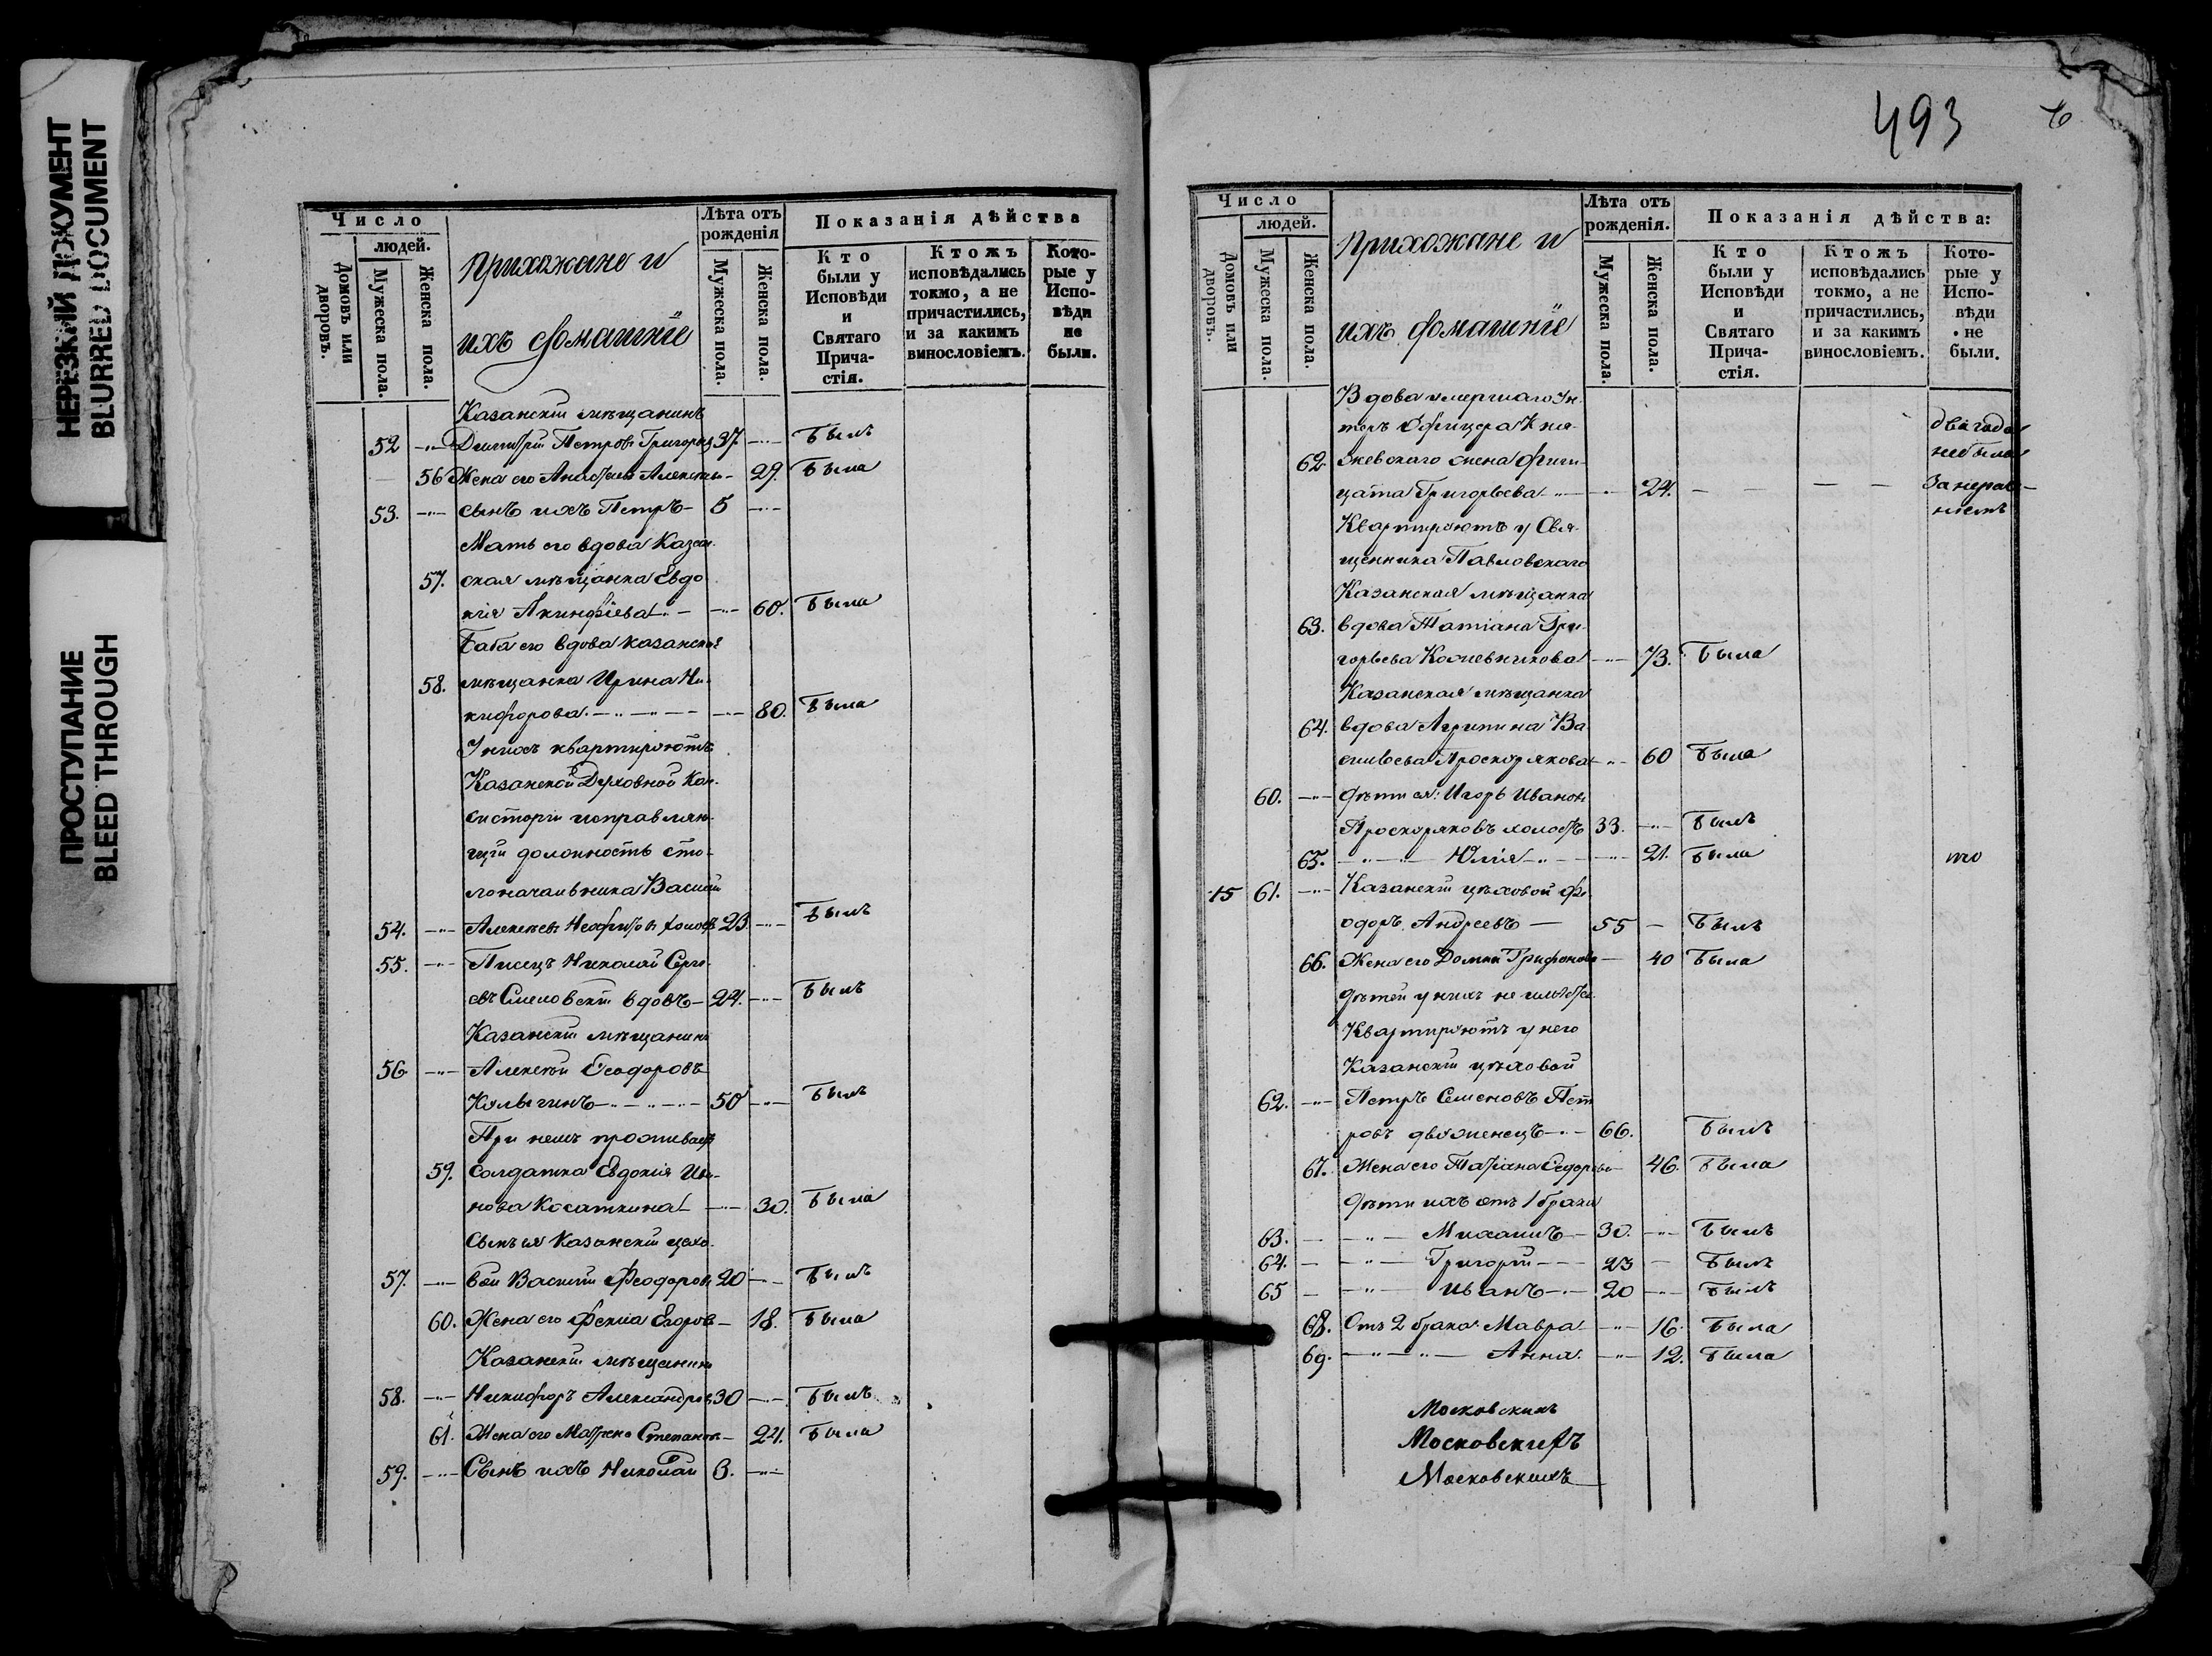 НЕРЕЗКИЙ ДОКУМЕНТ
BLURRED DOCUMENT
ПРОСТУПАНИЕ
BLEED THROUGH
Число
людей.
Домовъ или дворовъ.
Мужеска пола.
Женска пола.
Прихожане и
ихъ домашніе
Лѣта отъ рожденія
Мужеска пола.
Женска пола.
Показанія дѣйства
Кто были у Исповѣди и Святаго Прича-стія.
Ктожъ исповѣдались токмо, а не причастились, и за какимъ винословіемъ.
Кото-рые у Испо-вѣди не были.
Казанскій мѣщанинъ
52 Димитрій Петровъ 37 былъ
56 Жена его 29. была
53. сынъ ихъ Петръ 5
Мать его вдова Казан-
57. ская мѣщанка Евдо
кія Акинфіева 60. была
Баба его вдова казанская
58. мѣщанка Ирина Ни-
кифорова 80. была
У нихъ квартируютъ
Казанской Духовной Кон-
систоріи исправляю-
щій должность сто-
лоначальника Василій
54. 23 былъ
55. Писецъ Николай Серге-
евъ вдовъ 24. былъ
Казанскій мѣщанинъ
56 Алексѣй Ѳеодоровъ
50 былъ
При немъ проживаетъ
59. солдатка Евдокія Ива-
нова Косаткина 30. была
Сынъ ея Казанскій цехо-
57. вой Василій Феодоровъ 20 былъ
60. Жена его Фекла Егорова 18. была
Казанскій мѣщанинъ
58. Никифоръ Александровъ 30 былъ
61. Жена его Матрена Степанова 24. была
59. Сынъ ихъ Николай 3.
493
6
Число
людей.
Домовъ или дворовъ.
Мужеска пола.
Женска пола.
Прихожане и
ихъ домашніе
Лѣта отъ рожденія.
Мужеска пола.
Женска пола.
Показанія дѣйства:
Кто были у Исповѣди и Святаго Прича-стія.
Ктожъ исповѣдались токмо, а не причастились, и за какимъ винословіемъ.
Кото-рые у Испо-вѣди не были.
Вдова умершаго Ун-
теръ Офицера Кня- два года
62 жевскаго жена не была
Григорьева 24.
Квартируютъ у Свя-
щенника Павловскаго
Казанская мѣщанка
63. вдова Татіана Гри-
горьева Кожевникова 73. была
Казанская мѣщанка
64. вдова Агрипина Ва
сильева Проскорякова 60 была
60. дѣти ея: Игорь Ивановъ
Проскоряковъ холостъ 33. былъ
65. Юлія 21. была
15 61. Казанскій цѣховой Фе-
одоръ Андреевъ 55 былъ
66. Жена его Домна Трифонова 40 была
дѣтей у нихъ не имѣется
Квартируютъ у него
Казанскій цѣховой
62. Петръ Семеновъ Пет
ровъ двоженецъ 66. былъ
67. Жена его Татіана 46. была
дѣти ихъ отъ 1 брака
63. Михаилъ 30. былъ
64. Григорій 23 былъ
65 Иванъ 20 былъ
68. Отъ 2 брака Мавра 16. была
69. Анна. 12. была
Московскихъ
Московскихъ
Московскихъ